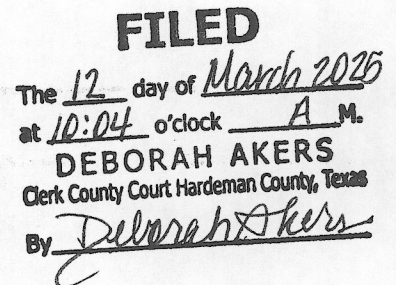 FILED
The 12 day of March 2025
at 10:04 o'clock A M.
DEBORAH AKERS
Clerk County Court Hardeman County, Texas
By Deborah Akers